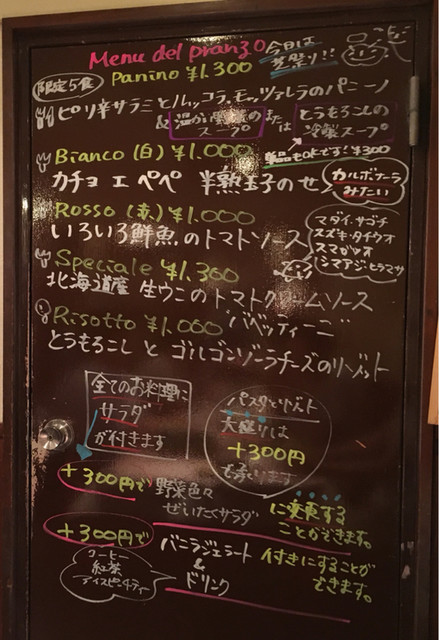 Menu del pranzo
今日は
夏祭り!!
限定5食
Panino ¥1.300
ピリ辛サラミとルッコラ、モッツァレラのパニーノ
& 温かい野菜のスープ または とうもろこしの冷製スープ
単品もOKです! ¥300
Bianco (白) ¥1.000
カチョ エ ペペ 半熟玉子のせ
カルボナーラ
みたい
Rosso (赤) ¥1.000
いろいろ鮮魚のトマトソース
マダイ・サゴチ
スズキ・タチウオ
スマガツオ
シマアジ・ヒラマサ
Speciale ¥1.300
北海道産 生ウニのトマトクリームソース
バベッティーニ
Risotto ¥1.000
とうもろこしとゴルゴンゾーラチーズのリゾット
全てのお料理に
サラダ
が付きます
パスタとリゾット
大盛りは
+300円
で承ります
+300円で 野菜色々
ぜいたくサラダ
に変更する
ことができます。
+300円で バニラジェラート
&
ドリンク
付きにすることが
できます。
コーヒー
紅茶